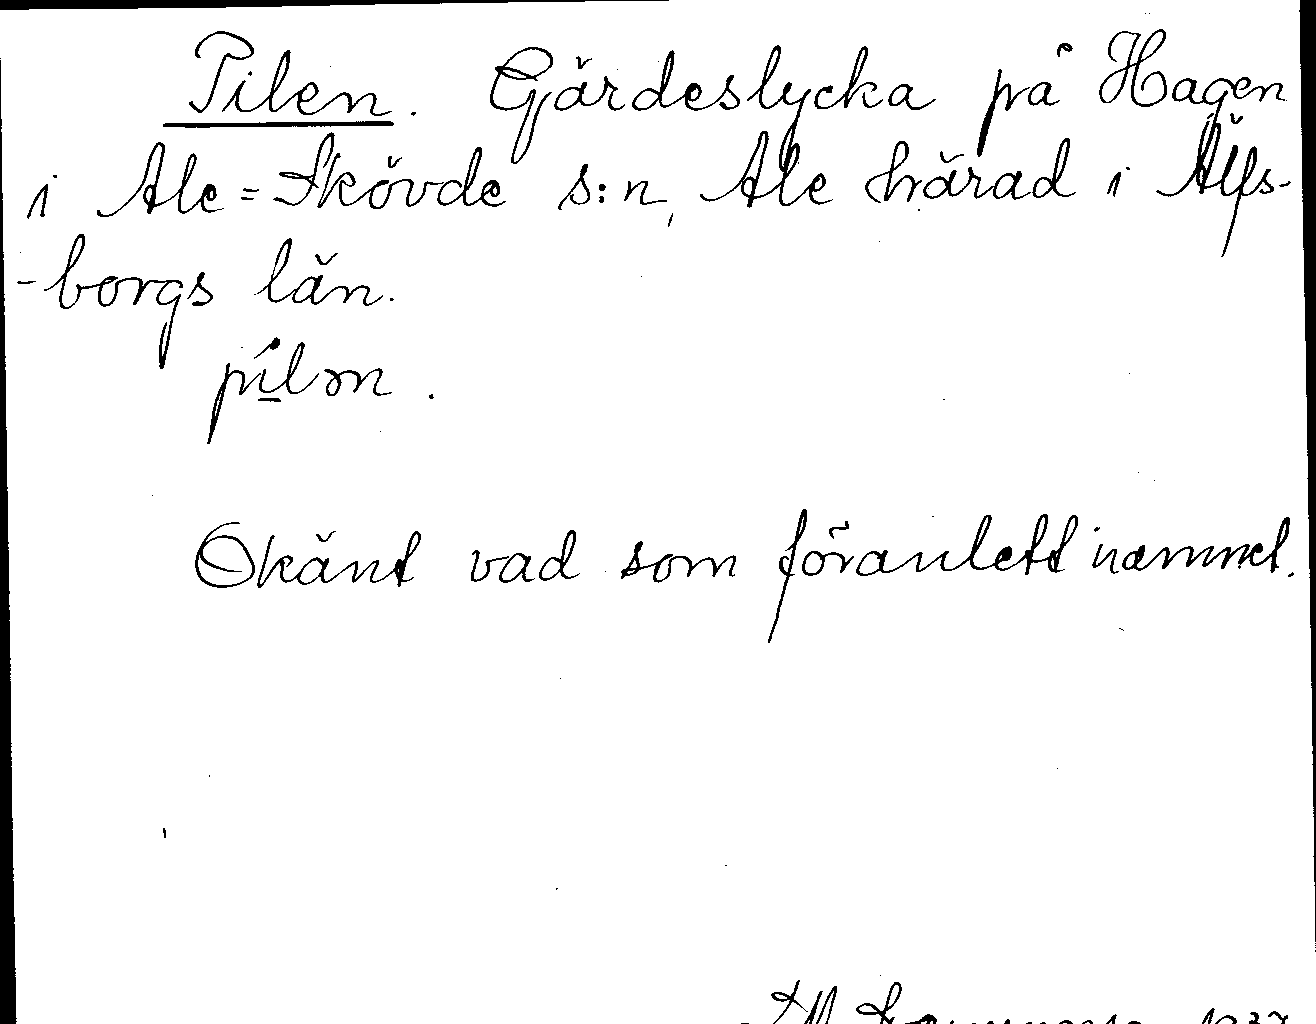 Pilen. Gärdeslycka på Hagen
i Ale=Skövde s:n, Ale härad i Älfs-
-borgs län.
pi̱lən.
Okänt vad som föranlett namnet.